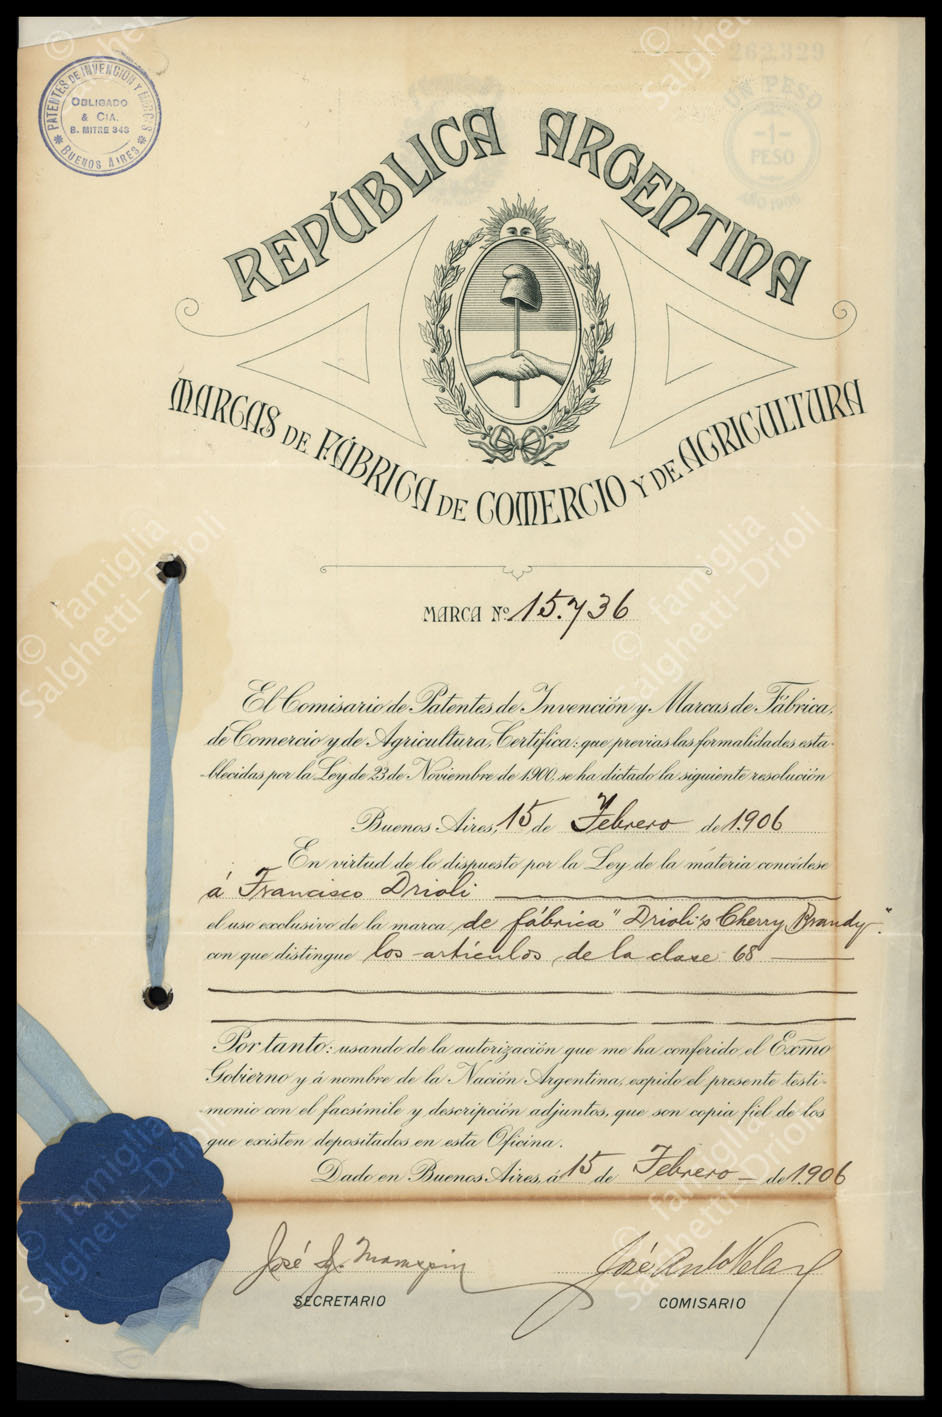 PATENTES DE INVENCION Y MARCAS
OBLIGADO
& CIA.
B. MITRE 343
BUENOS AIRES
262,329
UN PESO
1-
PESO
AÑO 1906
REPÚBLICA ARGENTINA
MARCAS DE FÁBRICA DE COMERCIO Y DE AGRICULTURA
MARCA Nº 15.736
El Comisario de Patentes de Invención y Marcas de Fábrica,
de Comercio y de Agricultura, Certifica: que previas las formalidades esta-
-blecidas por la Ley de 23 de Noviembre de 1900, se ha dictado la siguiente resolución
Buenos Aires, 15 de Febrero de 1.906
En virtud de lo dispuesto por la Ley de la materia concédese
á Francisco Drioli
el uso exclusivo de la marca de fábrica "Drioli's Cherry Brandy".
con que distingue los artículos de la clase 68
Por tanto: usando de la autorización que me ha conferido el Exmo
Gobierno y á nombre de la Nación Argentina, expido el presente testi-
-monio con el facsímile y descripción adjuntos, que son copia fiel de los
que existen depositados en esta Oficina.
Dado en Buenos Aires, á 15 de Febrero de 1.906
José
José
SECRETARIO
COMISARIO
© famiglia
Salghetti-Drioli
© famiglia
Salghetti-Drioli
© famiglia
Salghetti-Drioli
© famiglia
Salghetti-Drioli
© famiglia
Salghetti-Drioli
© famiglia
Salghetti-Drioli